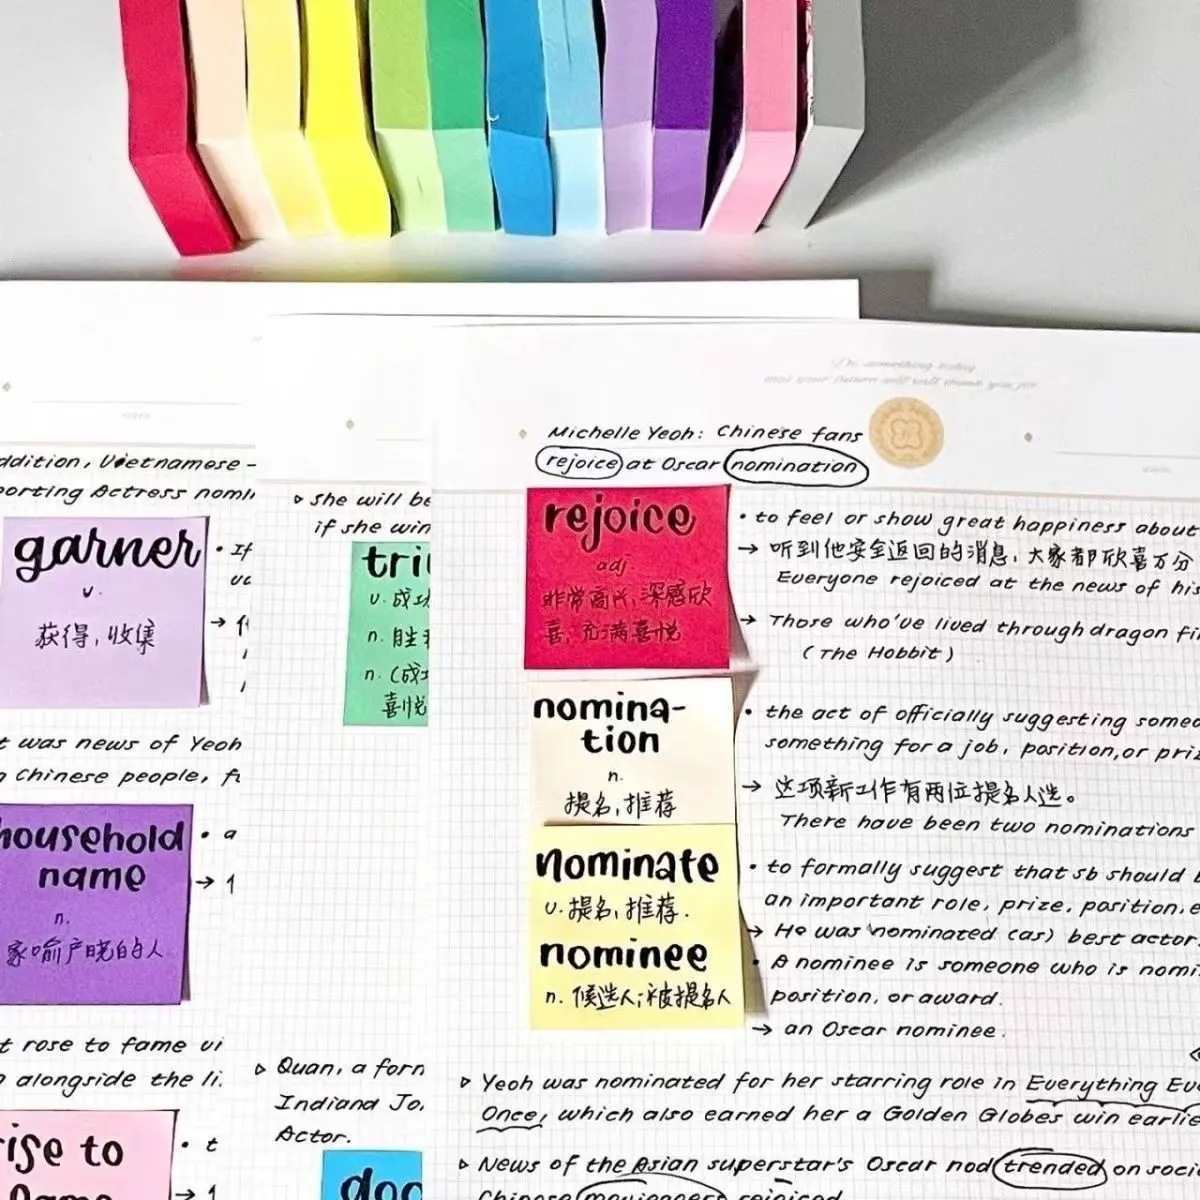 Michelle Yeoh: Chinese fans
rejoice at Oscar nomination
rejoice
adj.
非常高兴,深感欣
喜,充满喜悦
• to feel or show great happiness about
→ 听到他安全返回的消息,大家都欣喜万分
Everyone rejoiced at the news of his
→ Those who've lived through dragon fi
(The Hobbit)
nomina-
tion
n.
提名,推荐
• the act of officially suggesting someo
something for a job, position, or priz
→ 这项新工作有两位提名人选。
There have been two nominations
nominate
v. 提名,推荐.
nominee
n. 候选人;被提名人
• to formally suggest that sb should b
an important role, prize, position, e
→ He was nominated (as) best actor
• A nominee is someone who is nomi
position, or award.
→ an Oscar nominee.
▷ Yeoh was nominated for her starring role in Everything Eve
Once, which also earned her a Golden Globes win earlie
▷ News of the Asian superstar's Oscar nod trended on soci
Chinese moviegoers rejoiced
▷ she will be
if she win
tri
v. 成功
n. 胜利
n. (成功
喜悦
▷ Quan, a forn
Indiana Jo
Actor.
doc
ddition, Vietnamese -
porting Actress nomi
garner
v.
获得,收集
• If
→
t was news of Yeoh
Chinese people, f
household
name
n.
家喻户晓的人
• a
→
t rose to fame vi
alongside the li
rise to
fame
• t
→